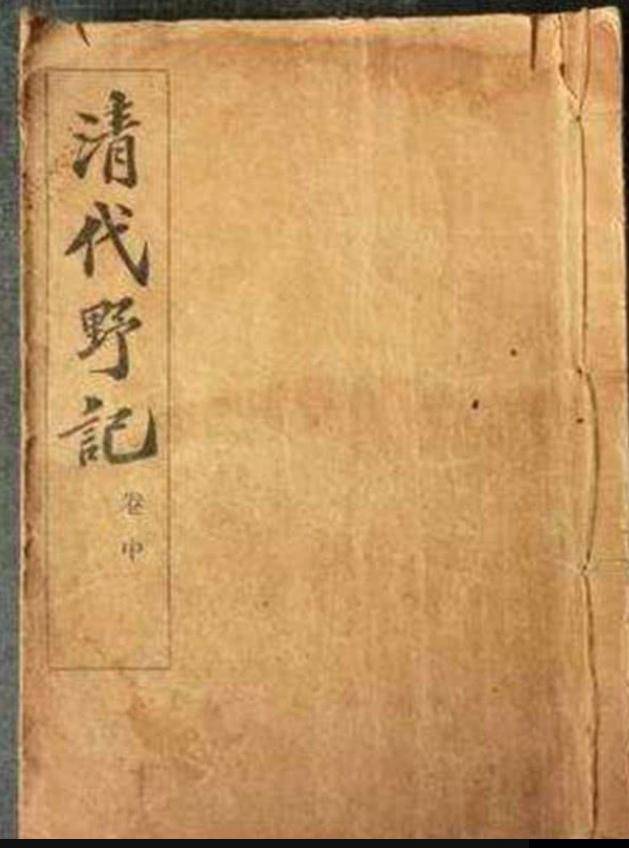 清代野記
卷中